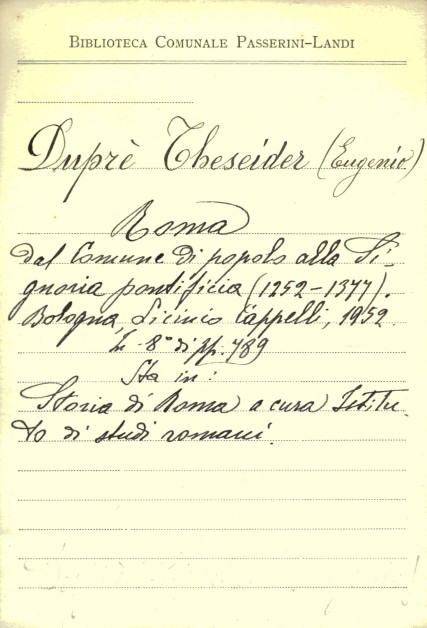 BIBLIOTECA COMUNALE PASSERINI-LANDI
Duprè Theseider (Eugenio)
Roma
dal Comune di popolo alla Si-
gnoria pontificia (1252-1377).
Bologna, Licinio Cappelli, 1952
In-8° di pp. 789
Sta in:
Storia di Roma a cura Istitu-
to di studi romani.